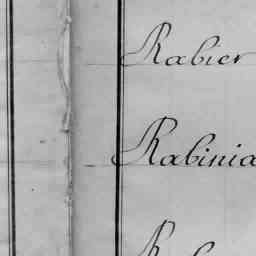 Rabier
Rabinia